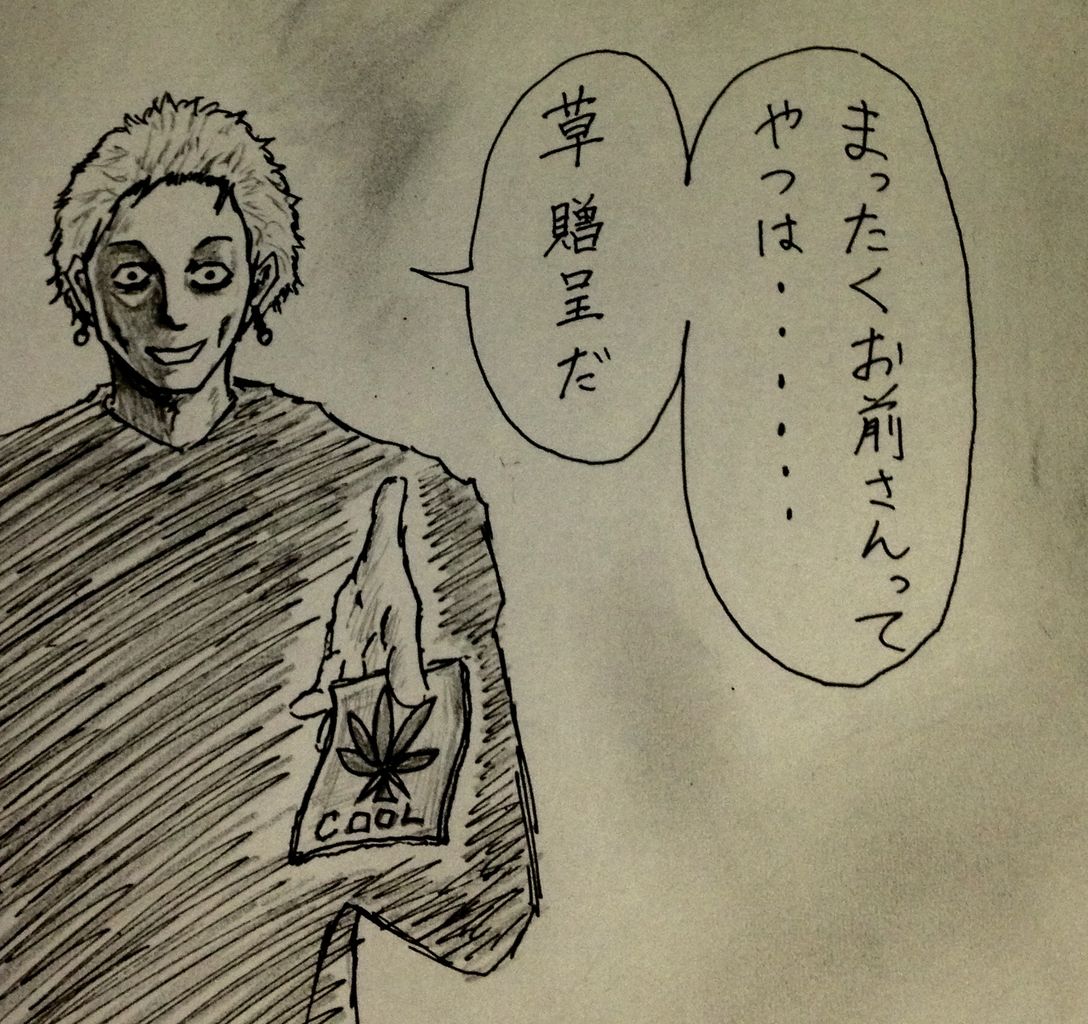 まったくお前さんって
やつは・・・・・・
草 贈呈だ
COOL